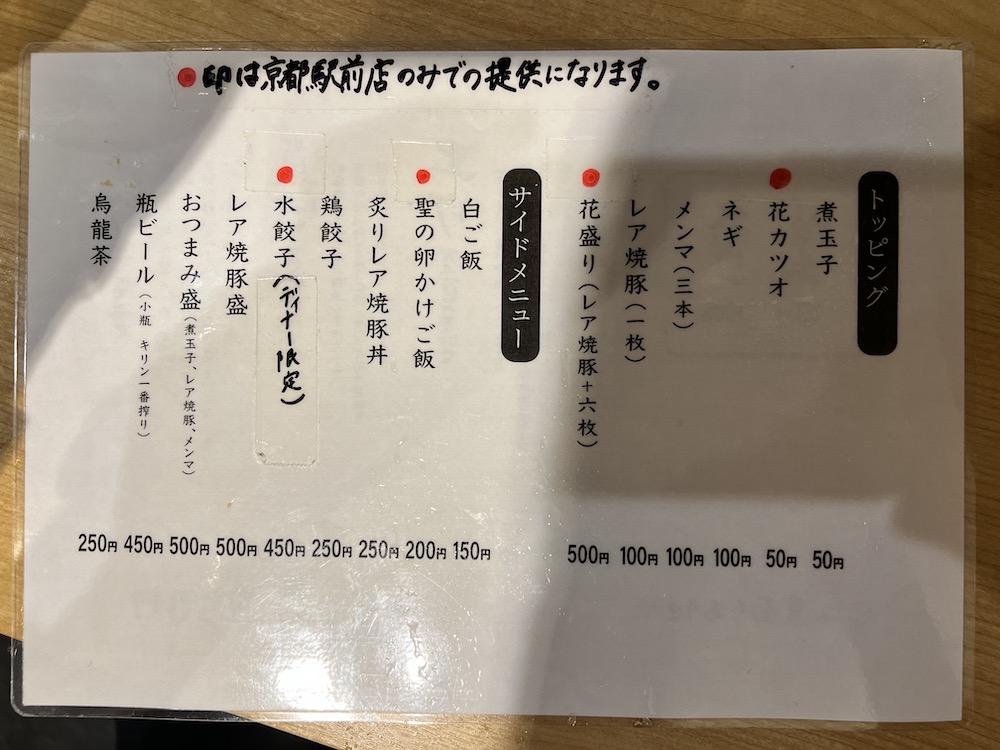 ●印は京都駅前店のみでの提供になります。
トッピング
煮玉子 50円
●花カツオ 50円
ネギ 100円
メンマ(三本) 100円
レア焼豚(一枚) 100円
●花盛り(レア焼豚+六枚) 500円
サイドメニュー
白ご飯 150円
●聖の卵かけご飯 200円
炙りレア焼豚丼 250円
鶏餃子 250円
●水餃子(ディナー限定) 450円
レア焼豚盛 500円
おつまみ盛(煮玉子、レア焼豚、メンマ) 500円
瓶ビール(小瓶 キリン一番搾り) 450円
烏龍茶 250円